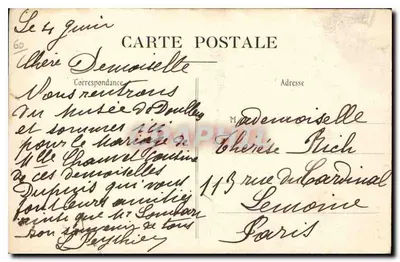 60
Le 4 Juin
CARTE POSTALE
Chère Demoiselle
Correspondance
Adresse
Nous rentrons
du Musée de Doullens
et sommes ici
pour le Mariage de
Mlle Cousine
de ces demoiselles
Dupuis qui vous
font leurs amitiés
ainsi que Mr
bon souvenir de tous
Mademoiselle
Thérèse Rich
113 rue du Cardinal
Lemoine
Paris